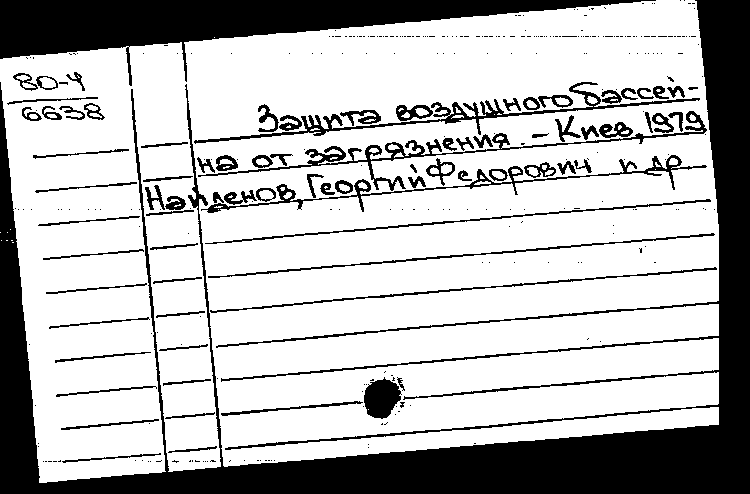 80-4
6638
Защита воздушного бассей-
на от загрязнения. - Киев, 1979
Найденов, Георгий Федорович и др.